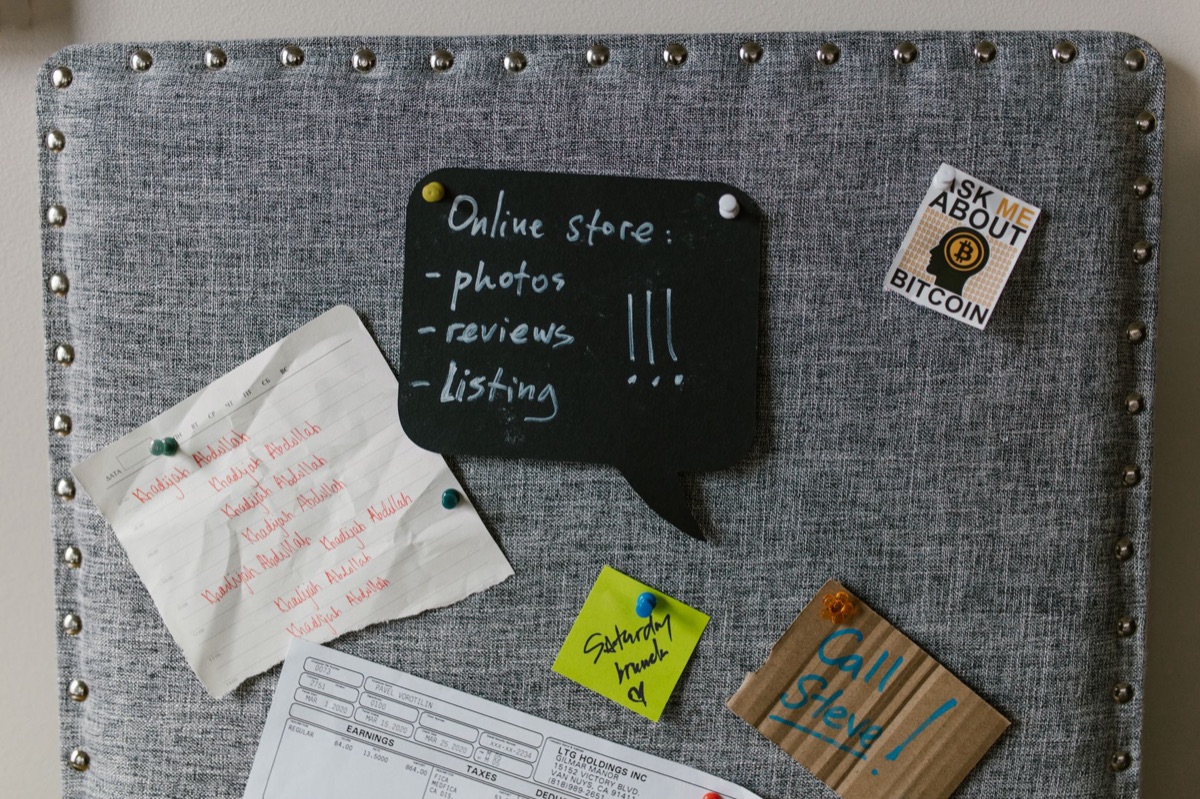 Online store:
- photos
- reviews
- Listing
!!!
ASK ME
ABOUT
BITCOIN
ПТ СР ЧТ ПТ СБ ВС
ДАТА
Khadijah Abdullah
Khadijah Abdullah
Khadijah Abdullah
Khadijah Abdullah
Khadijah Abdullah
Khadijah Abdullah
Khadijah Abdullah
Khadijah Abdullah
Saturday
brunch
Call
Steve!
0072
PAVEL VOROTILIN
2751
0100
MAR 3 2020
MAR 15 2020
MAR 25 2020
XXX-XX-2234
EARNINGS
REGULAR
64.00
13.5000
864.00
TAXES
FICA
MEDFICA
CA DIS.
LTG HOLDINGS INC
GILMAR MANOR
15152 VICTORY BLVD.
VAN NUYS, CA 91411
(818)989-2651